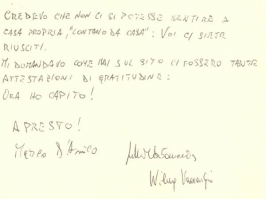 CREDEVO CHE NON CI SI POTESSE SENTIRE A
CASA PROPRIA, "LONTANO DA CASA": VOI CI SIETE
RIUSCITI.
MI DOMANDAVO COME MAI SUL SITO CI FOSSERO TANTE
ATTESTAZIONI DI GRATITUDINE:
ORA HO CAPITO!
A PRESTO!
D'AMICO